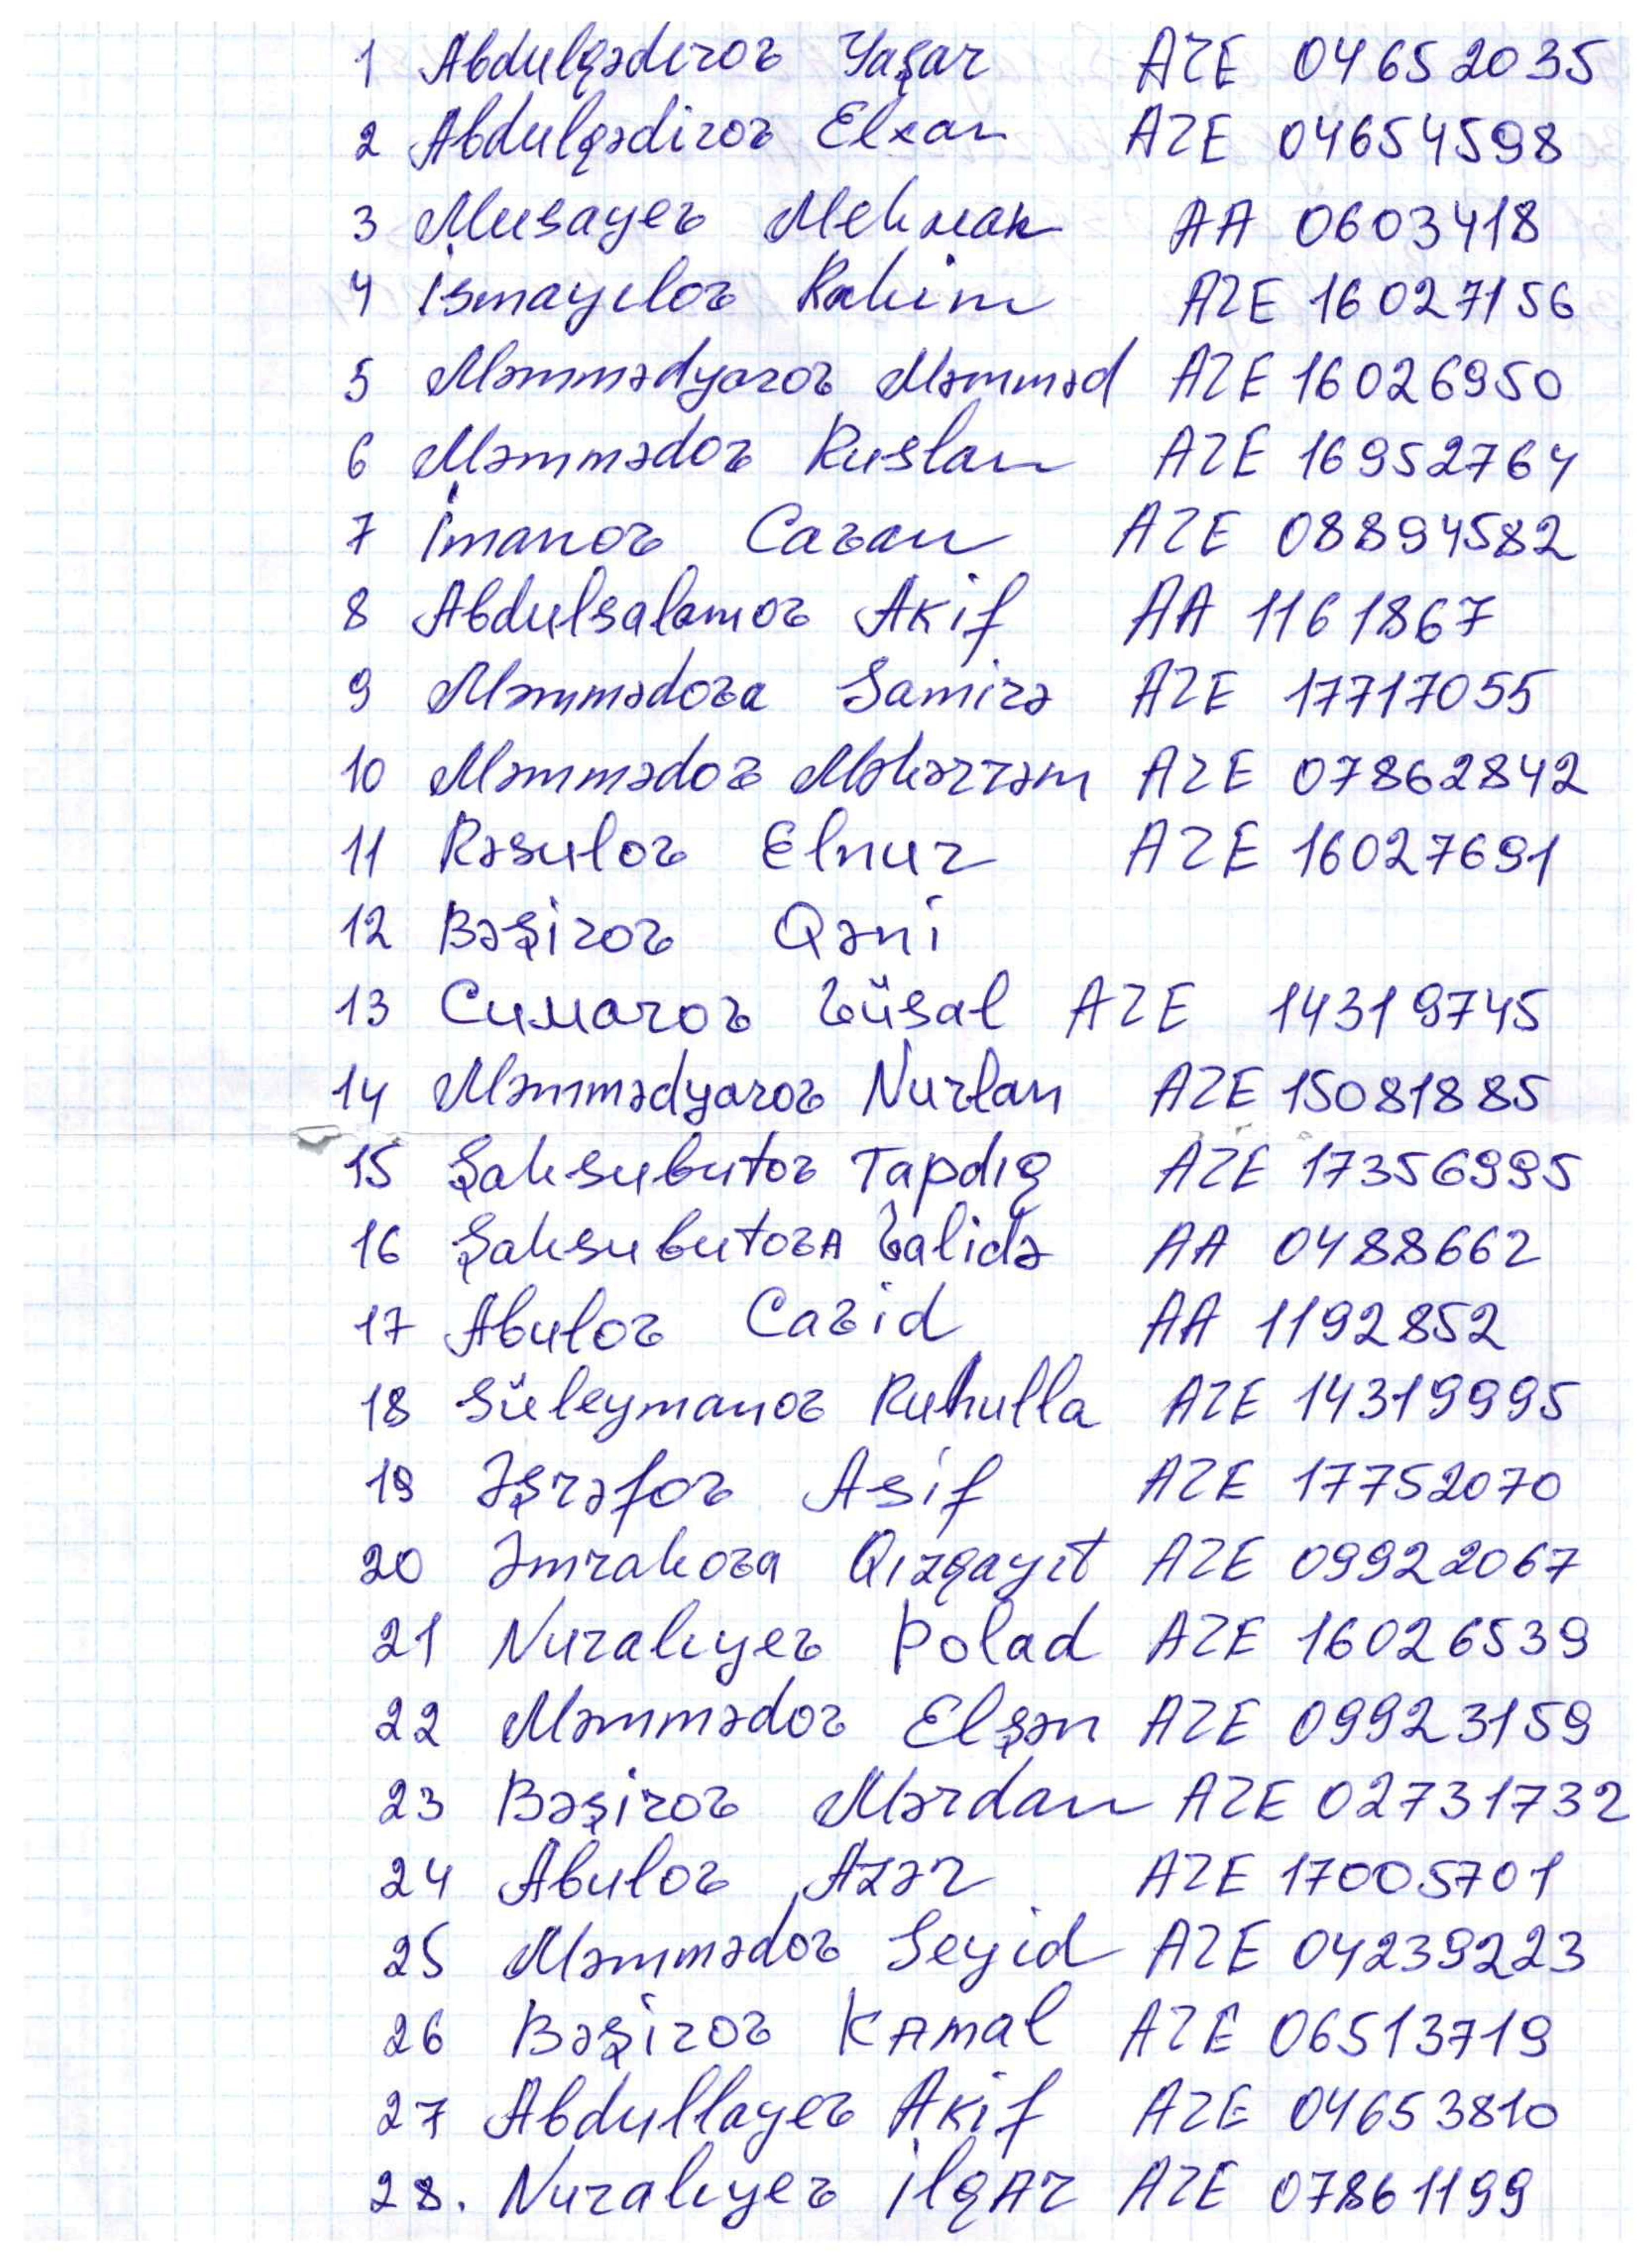 1 Abdulqədirov Yaşar AZE 04652035
2 Abdulqədirov Elxan AZE 04654598
3 Musayev Mehman AA 0603418
4 İsmayılov Rahim AZE 16027156
5 Məmmədyarov Məmməd AZE 16026950
6 Məmmədov Ruslan AZE 16952764
7 İmanov Cavan AZE 08894582
8 Abdulsalamov Akif AA 1161867
9 Məmmədova Samirə AZE 17717055
10 Məmmədov Məhərrəm AZE 07862842
11 Rəsulov Elnur AZE 16027691
12 Bəşirov Qəni
13 Cumarov Vüsal AZE 14319745
14 Məmmədyarov Nurlan AZE 15081885
15 Şahsubutov Tapdıq AZE 17356995
16 Şahsubutova Validə AA 0488662
17 Abulov Cavid AA 1192852
18 Süleymanov Ruhulla AZE 14319995
19 Əşrəfov Asif AZE 17752070
20 Əmrahova Qızqayıt AZE 09922067
21 Nuralıyev Polad AZE 16026539
22 Məmmədov Elşən AZE 09923159
23 Bəşirov Mərdan AZE 02731732
24 Abulov Azər AZE 17005701
25 Məmmədov Seyid AZE 04239223
26 Bəşirov Kamal AZE 06513719
27 Abdullayev Akif AZE 04653810
28. Nuralıyev İlqar AZE 07861199